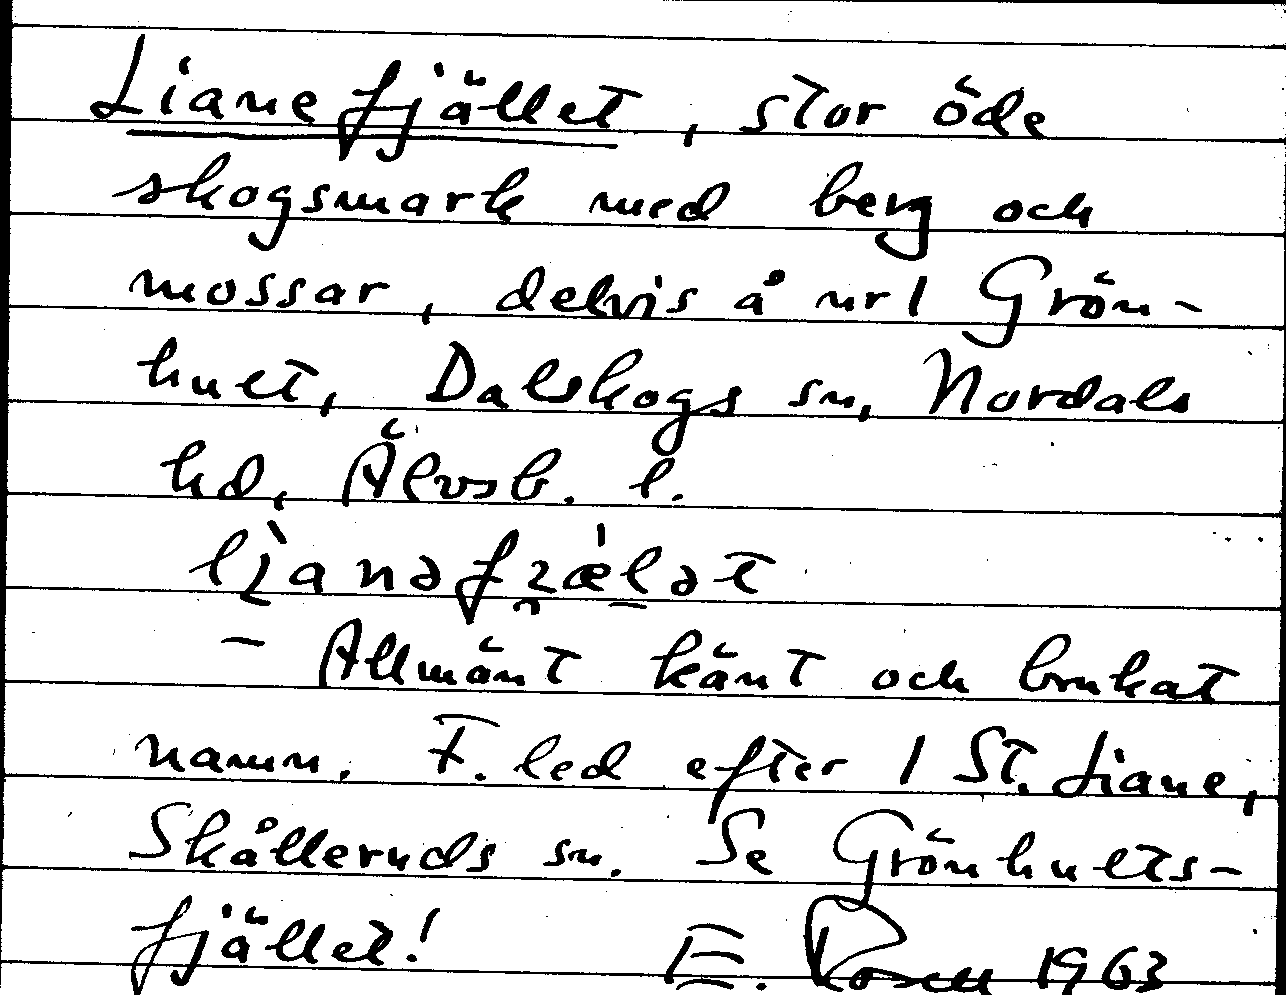 Lianefjället, stor öde
skogsmark med berg och
mossar, delvis å nr 1 Grön-
hult, Dalskogs sn, Nordals
hd, Älvsb. l.
- Allmänt känt och brukat
namn. F. led efter 1 St. Liane,
Skålleruds sn. Se Grönhults-
fjället! E. Rosell 1963